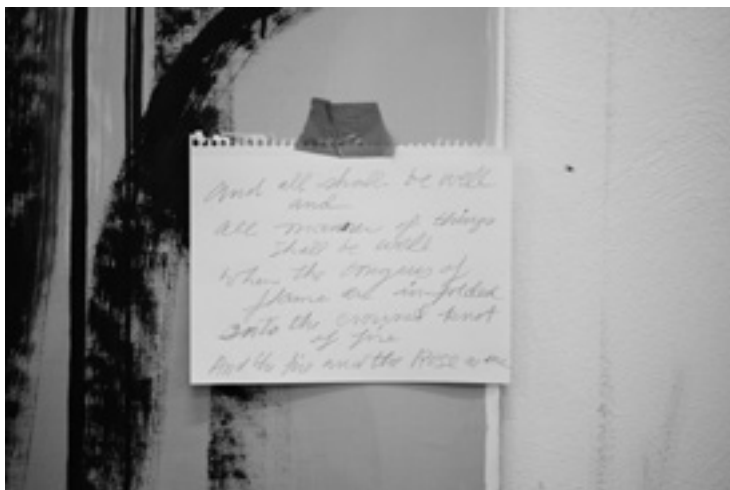 And all shall be well
and
all manner of things
shall be well
When the tongues of
flame are in-folded
Into the crowned knot
of fire
And the fire and the Rose are one